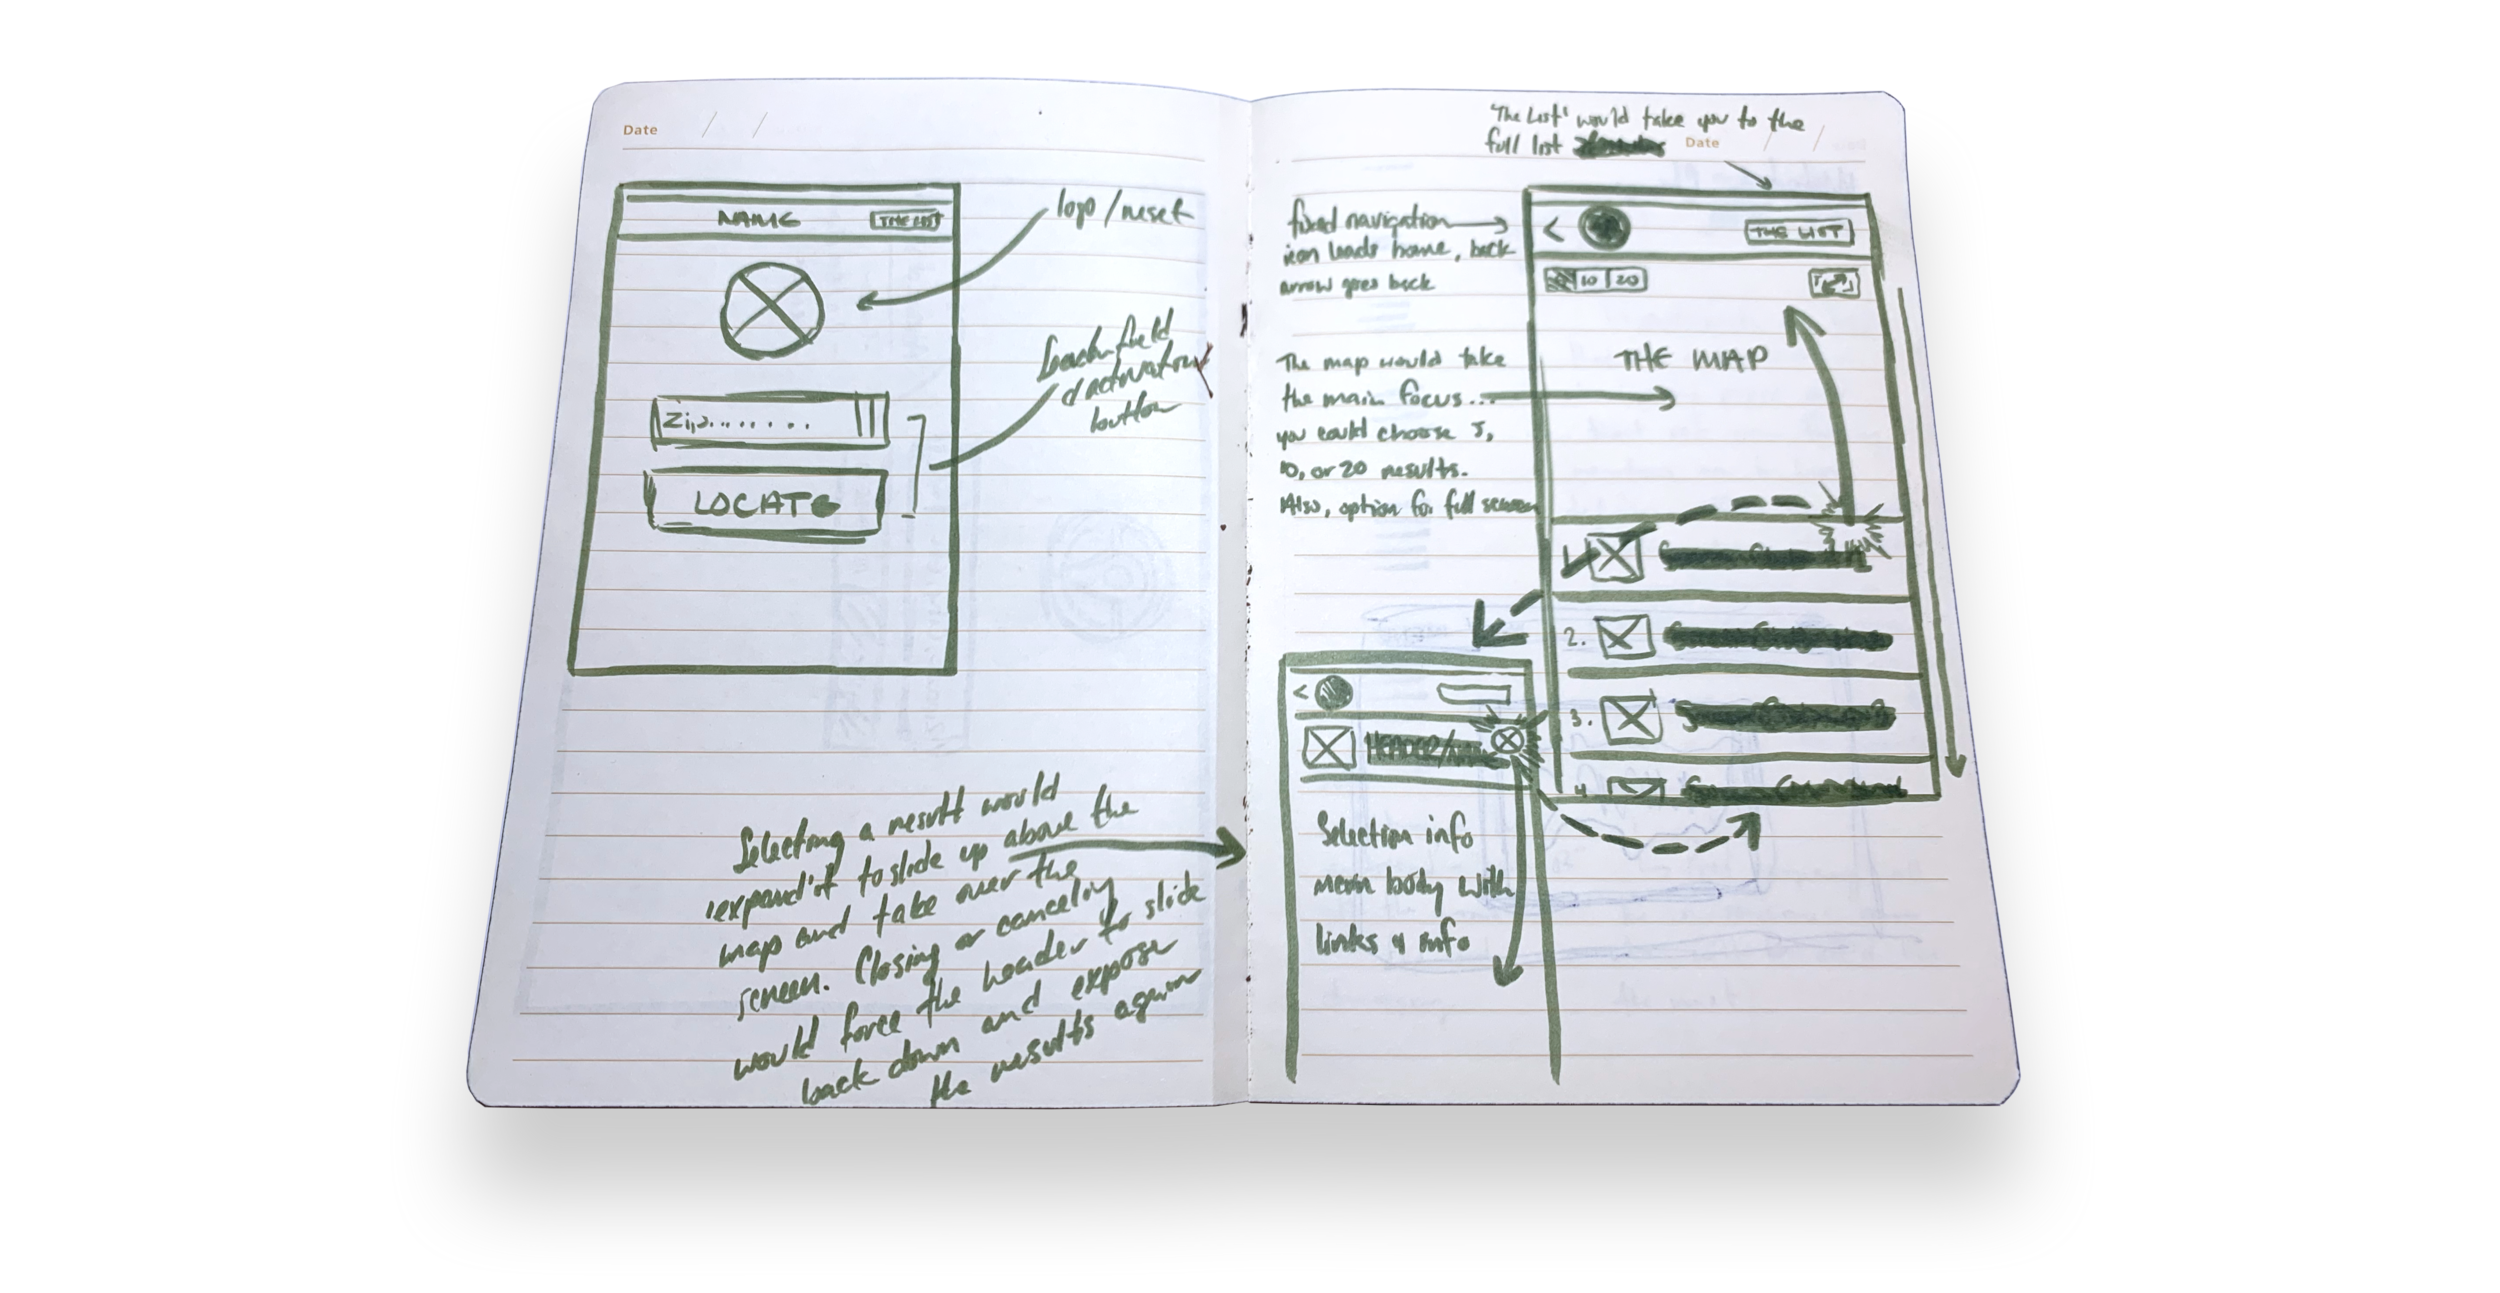 Date / /
NAME
THE LIST
logo/reset
Search field
& activation
button
Zip........
LOCATE
Selecting a result would
'expand' it to slide up above the
map and take over the
screen. Closing or canceling
would force the header to slide
back down and expose
the results again
'The List' would take you to the
full list
Date / /
fixed navigation
icon leads home, back
arrow goes back
<
THE LIST
10 20
The map would take
the main focus...
you could choose 5,
10, or 20 results.
Also, option for full screen
THE MAP
1.
2.
3.
4
<
HEADER/
Selection info
main body with
links & info